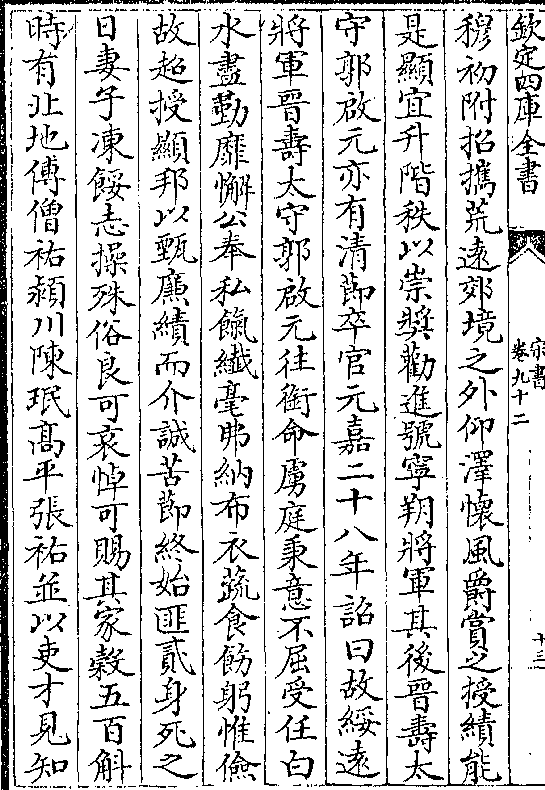 欽定四庫全書
宋書
卷九十二
十三
穆初附招攜荒遠郊境之外仰澤懷風爵賞之授績能
是顯宜升階秩以崇奬勸進號寧朔將軍其後晉壽太
守郭啟元亦有清節卒官元嘉二十八年詔曰故綏遠
將軍晉壽太守郭啟元往銜命虜庭秉意不屈受任白
水盡勤靡懈公奉私餼纎毫弗納布衣蔬食飭躬惟儉
故超授顯邦以甄廉績而介誠苦節終始匪貳身死之
日妻子凍餒志操殊俗良可哀悼可賜其家榖五百斛
時有北地傅僧祐潁川陳珉髙平張祐並以吏才見知